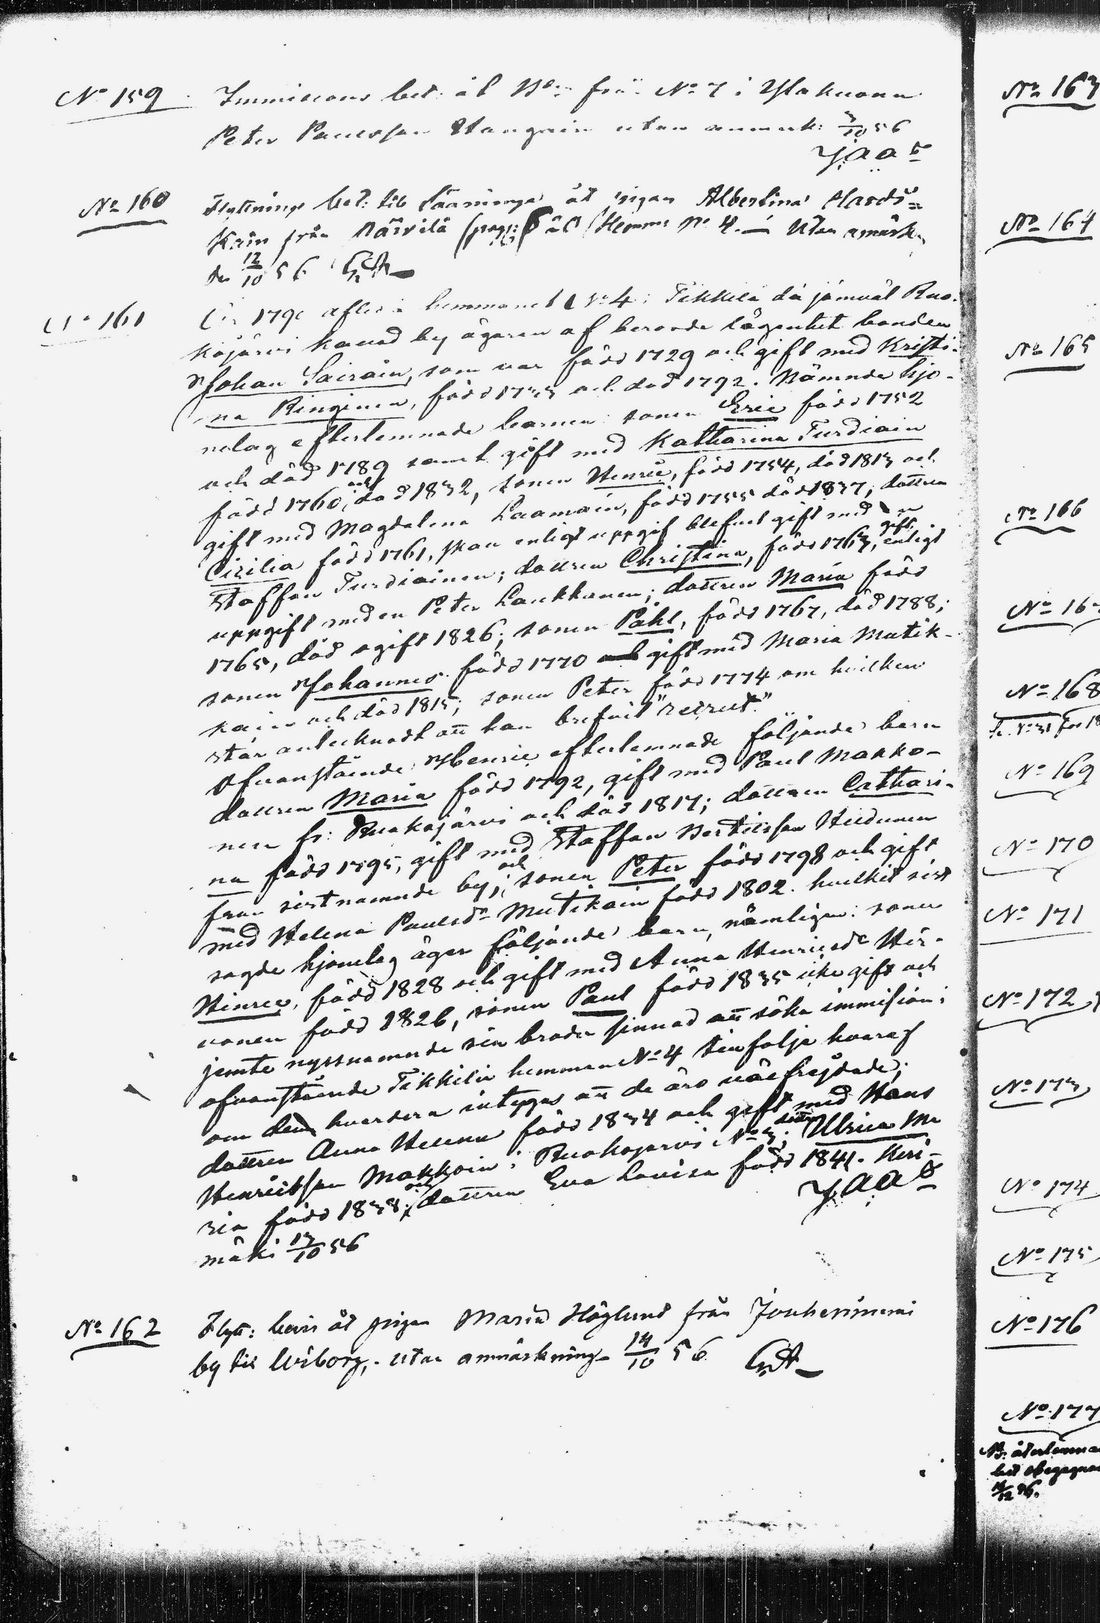 No 159 Immissions bet: åt från No 7 i
Peter Paulsson utan anmärk: 3/10 56
No 160 Flyttnings bet: till åt pigan Albertina
från Närvilä (pag: Hemm: No 4. — Utan anmärk.
den 12/10 56
No 161 År 179 afled å hemmanet No 4 i Tikkilä då jemväl Ruo-
kojärvi kallad by ägaren af berörde lägenhet bonden
Johan Sairain, som var född 1729 och gift med Kristi-
na Ringinen, född och död 1792. Nämnde hjo-
nelag efterlemnade barnen: sonen Eric född 1752
och död 1789 samt gift med Katharina Turdiain
född 1760, och död 1832, sonen Henric, född 1754, död 1813 och
gift med Magdalena Laamain, född 1755 död 1837; dottren
Cicilia född 1761, skan enligt uppgif blefvet gift med
Staffan Turdiainen; dottren Christina, född 1763, gift enligt
uppgift med en Peter Laukkanen; dottren Maria född
1765, död ogift 1826; sonen Påhl, född 1767, död 1788;
sonen Johannes född 1770 och gift med Maria Mutik-
kain och död 1815; sonen Peter född 1774 om hvilken
står antecknadt att han blefvit "recreut".
Ofvanstående Henric efterlemnade följande barn
dottren Maria född 1792, gift med Paul Makko-
nen fr: Ruokojärvi och död 1817; dottren Cathari-
na född 1795, gift med Staffan Bertilsson
från sistnämnde by; och sonen Peter född 1798 och gift
med Helena Paulsdr Mutikain född 1802. hvilket sist
sagde hjonelag äger följande barn, nämligen: sonen
Hinric, född 1828 och gift med Anna Henricsdr Hir-
vonen född 1826, sonen Paul född 1835 icke gift och
jemte nyssnämnde sin broder sinnad att söka immission i
ofvanstående Tikkilä hemman No 4 till följe hvaraf
om dem hvardera intygas att de äro välfrejdade;
dottren Anna Helena född 1834 och gift med Hans
Henricsson Makkoin i Ruokojärvi No 3; dottren Ulrica Ma
ria född 1838; och dottren Eva Lovisa född 1841. Keri-
mäki 13/10 56
No 162 Flytt: bevis åt pigan Maria Höglund från Jouhenniemi
by till Wiborg. utan anmärkning 14/10 56
No 163
No 164
No 165
No 166
No 168
No 169
No 170
No 171
No 172
No 173
No 174
No 175
No 176
No 177